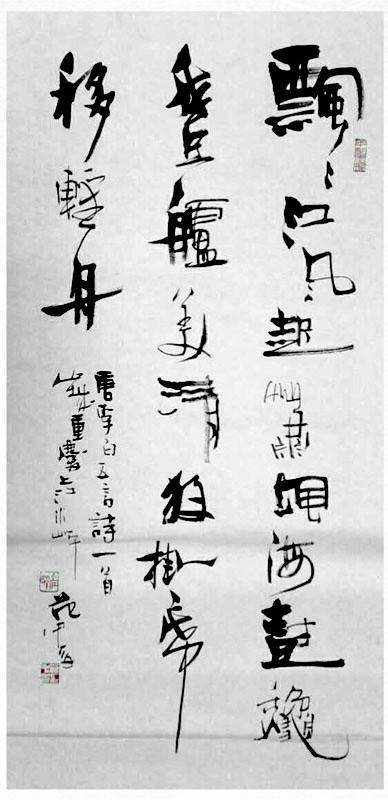 飄々江风起蕭颯海樹秋
登艫美清夜掛席
移輕舟
唐李白五言詩一首
重慶
范